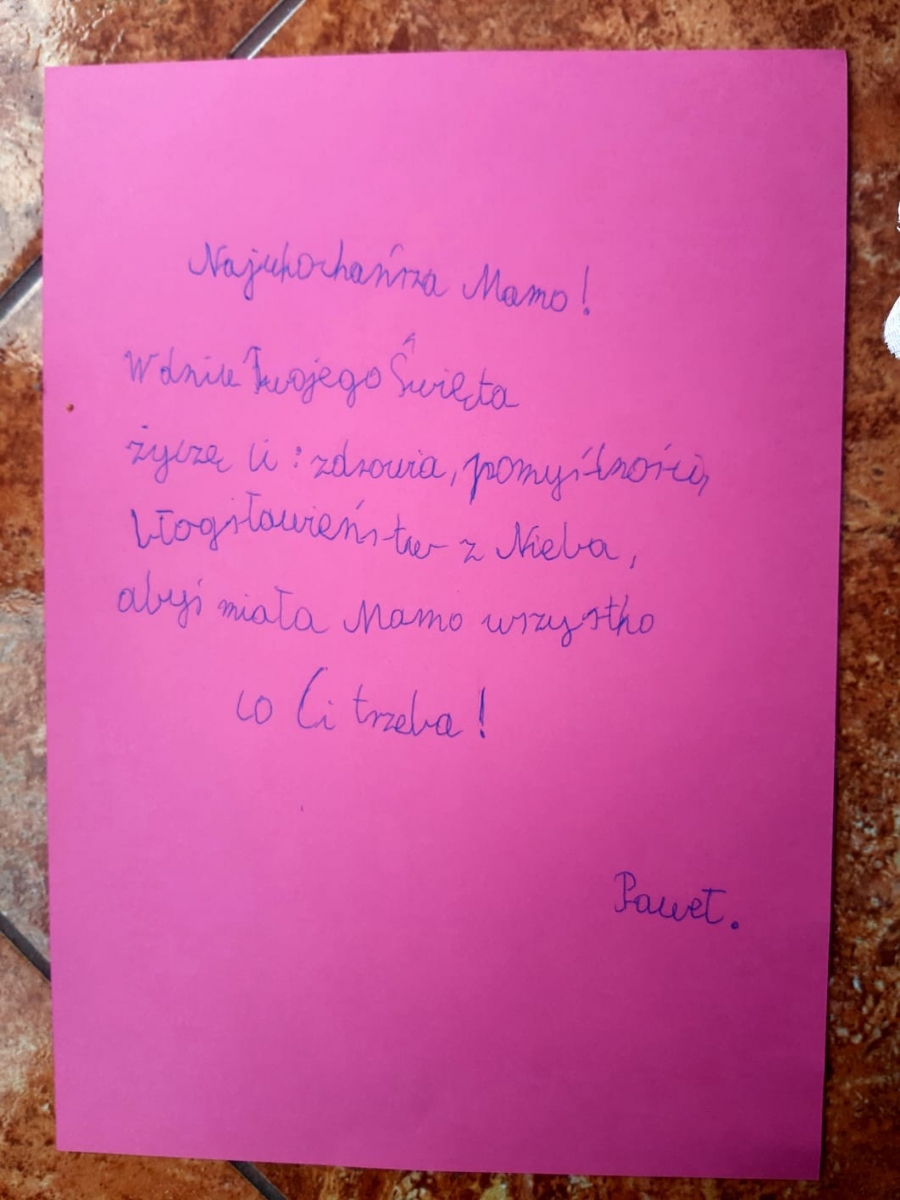 Najukochańsza Mamo!
W dniu Twojego Święta
życzę Ci: zdrowia, pomyślności,
błogsławieństw z Nieba,
abyś miała Mamo wszystko
co Ci trzeba!
Paweł.